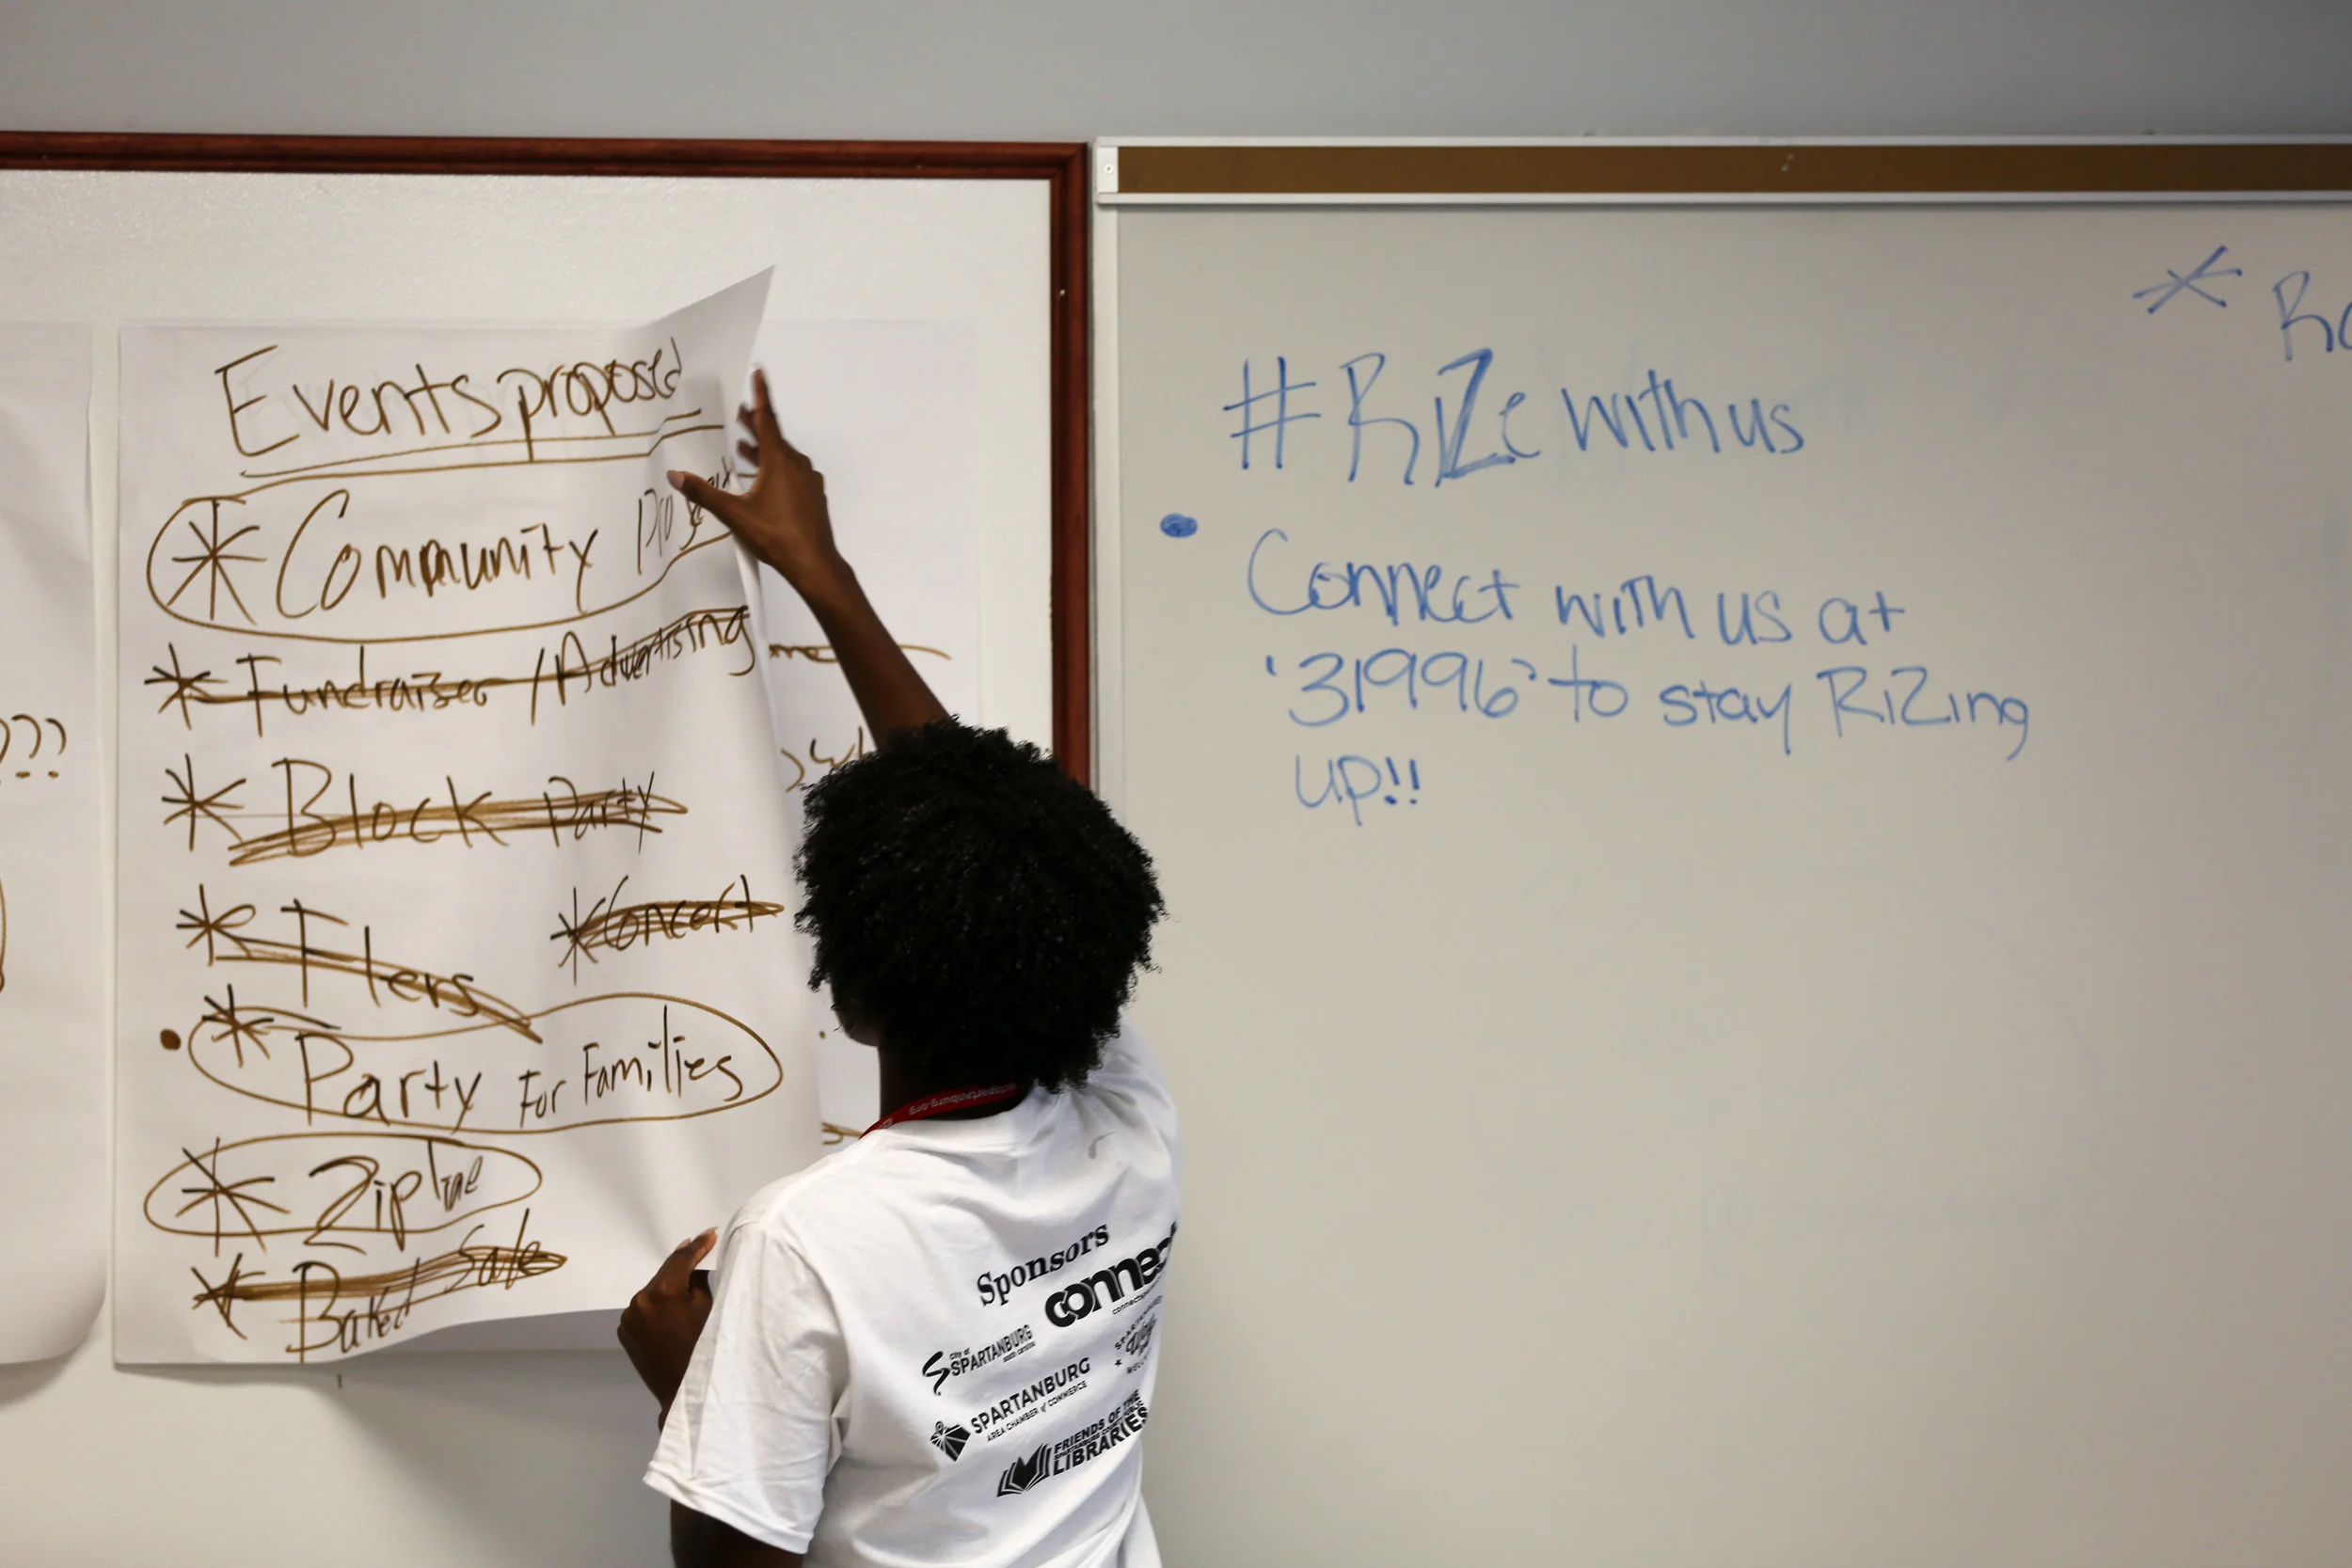 Events proposed
* Community Project
* Fundraiser / Advertising
* Block Party
* Flers
* Concert
* Party For Families
* Zipline
* Baked Sale
???
#RiZe with us
Connect with us at
'31996' to stay RiZing
up!!
*
Sponsors
connec
City of
SPARTANBURG
south carolina
SPARTANBURG
AREA CHAMBER of COMMERCE
FRIENDS OF THE
LIBRARIES